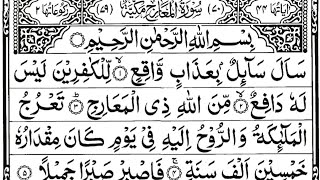 اٰيَاتُهَا ٤٤ (٧٠) سُوْرَةُ الْمَعَارِجِ مَكِّيَّةٌ (٧٩) رُكُوْعَاتُهَا ٢
بِسْمِ اللّٰهِ الرَّحْمٰنِ الرَّحِيْمِ
سَاَلَ سَآئِلٌۢ بِعَذَابٍ وَّاقِعٍ ۙ﴿۱﴾ لِّلْكٰفِرِيْنَ لَيْسَ
لَهٗ دَافِعٌ ۙ﴿۲﴾ مِّنَ اللّٰهِ ذِی الْمَعَارِجِ ؕ﴿۳﴾ تَعْرُجُ
الْمَلٰٓئِكَةُ وَالرُّوْحُ اِلَيْهِ فِیْ يَوْمٍ كَانَ مِقْدَارُهٗ
خَمْسِيْنَ اَلْفَ سَنَةٍ ۚ﴿۴﴾ فَاصْبِرْ صَبْرًا جَمِيْلًا ﴿۵﴾